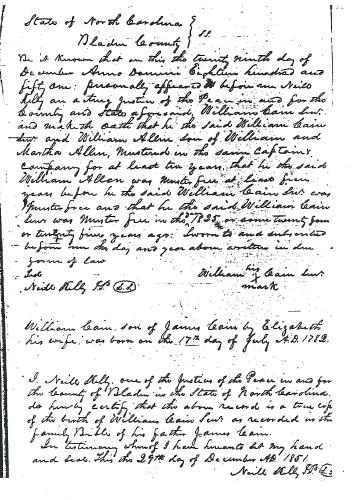 State of North Carolina }
Bladen County } SS.
Be it Known that on this the twenty ninth day of
December Anno Domini Eighteen hundred and
fifty one: personally appeared before me Neill
Kelly an acting Justice of the Peace in and for the
County and State aforesaid, William Cain Senr
and maketh oath that he the said William Cain
Senr and William Allen son of William and
Martha Allen, Mustered in the same Captains
Company for at least ten years, that he the said
William Allen was Muster free at least five
years before he the said William Cain Senr was
Muster free and that he the said William Cain
Senr was Muster free in the yr 1825, or some twenty four
or twenty five years ago: Sworn to and subscribed
before me the day and year above written in due
form of law
Test William his Cain Senr
Neill Kelly J.P. mark
William Cain, son of James Cain by Elizabeth
his wife, was born on the 17th day of July A.D. 1782.
I, Neill Kelly, one of the Justices of the Peace in and for
the County of Bladen in the State of North Carolina,
do hereby certify that the above record is a true copy
of the birth of William Cain Senr. as recorded in the
family Bible of his father James Cain.
In testimony whereof I have hereunto set my hand
and seal. This the 29th day of December AD 1851.
Neill Kelly J.P.